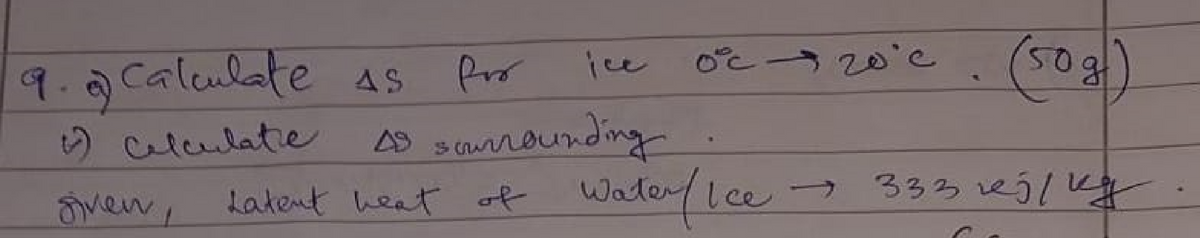 9. a) Calculate ΔS for ice 0°C → 20°C. (50g)
b) Calculate ΔS surrounding.
given, Latent heat of Water/Ice → 333 kJ/kg.